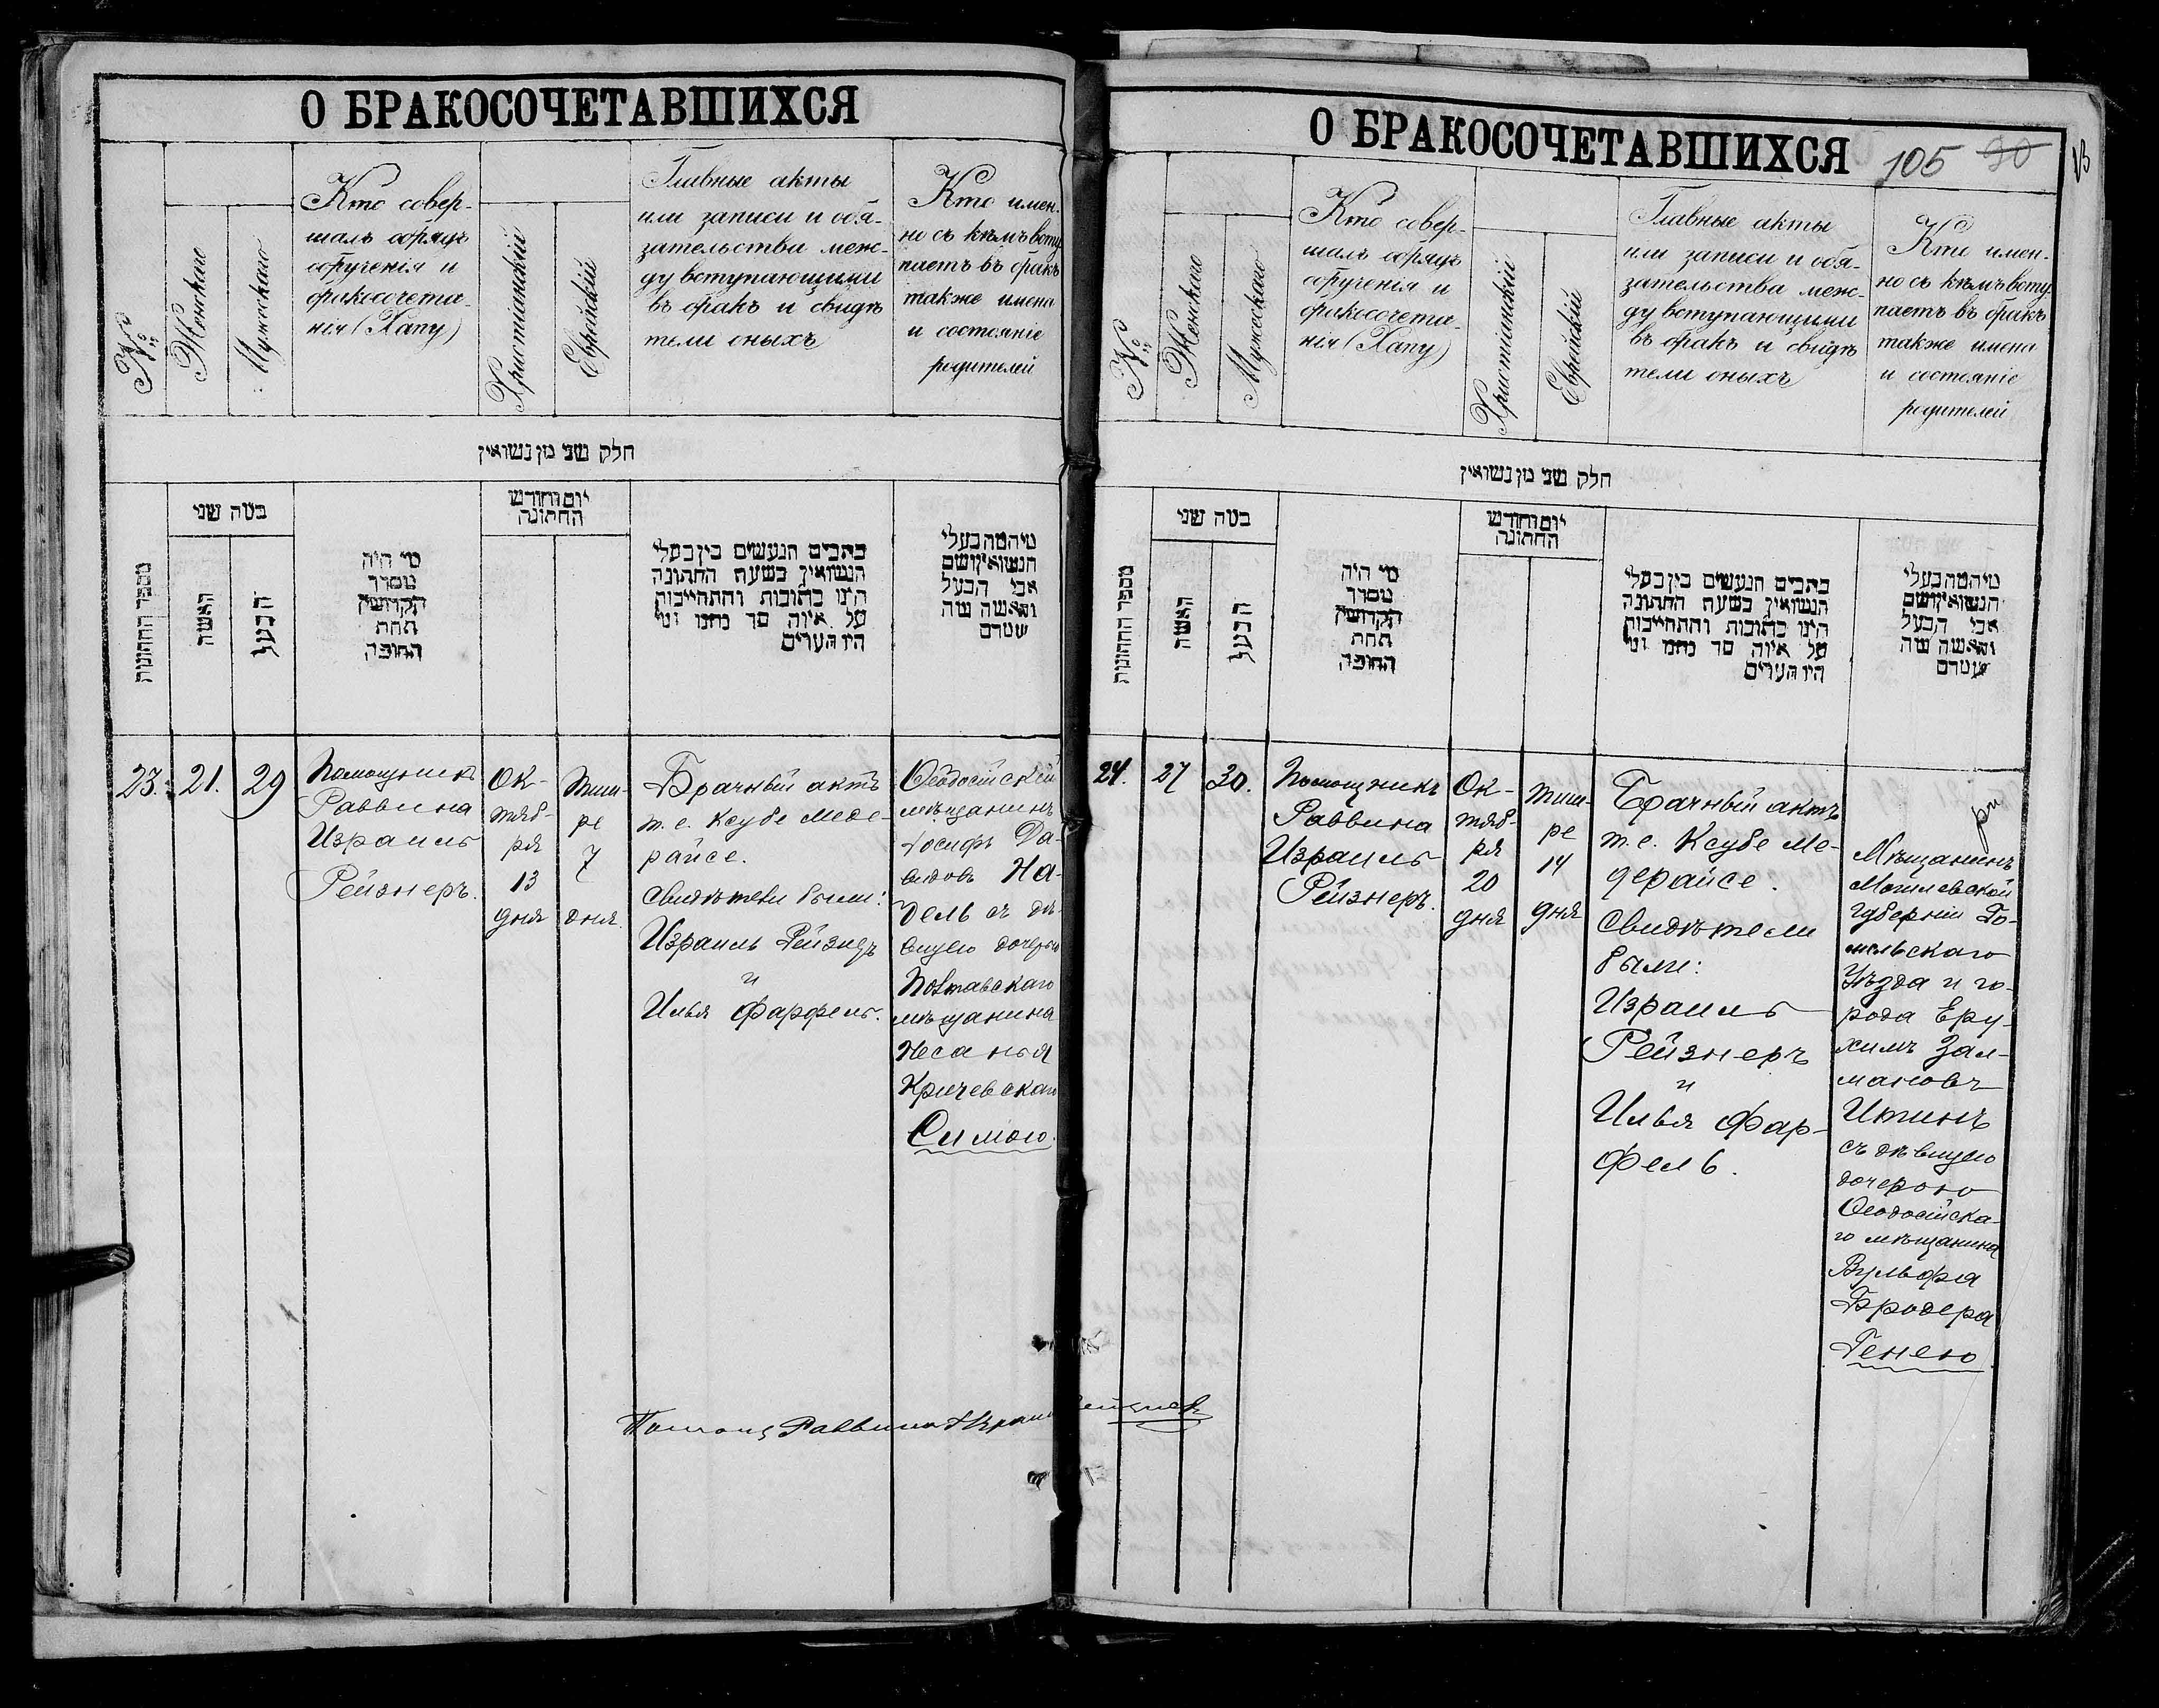 О БРАКОСОЧЕТАВШИХСЯ
№
Женскаго
Мужескаго
Кто совер-
шалъ обрядъ
обрученія и
бракосочета-
нія (Хапу)
Христіанскій
Еврейскій
Главные акты
или записи и обя-
зательства меж-
ду вступающими
въ бракъ и свидѣ
тели оныхъ
Кто имен-
но съ кѣмъ всту
паетъ въ бракъ
также имена
и состояніе
родителей
חלק שני מן נשואין
מספר החתונות
כמה שני
האשה
הבעל
מי היה
מסדר
הקדושין
תחת
החופה
יום וחודש
החתונה
כתבים הנעשים בין בעלי
הנשואין בשעת החתונה
הינו כתובות והתחייבות
על איזה סך נתנו ומי
היו העדים
מי המה בעלי
הנשואין ושם
אבי הבעל
והאשה ומה
שטרם
23.
21.
29
Помощникъ
Раввина
Израиль
Рейзнеръ.
Ок-
тяб-
ря
13
дня
Тиш-
ре
7
дня.
Брачный актъ
т. е. Ксубе Меде-
райсе.
Свидѣтели были:
Израиль Рейзнеръ
и
Илья Фарфель.
Ѳеодосійскій
мѣщанинъ
Іосифъ Да-
видовъ На-
дель съ дѣ-
вицею дочерью
Полтавскаго
мѣщанина
Несанья
Кричевскаго
Симою.
Помощ Раввина Израиль Рейзнеръ
О БРАКОСОЧЕТАВШИХСЯ
105 90
№
Женскаго
Мужескаго
Кто совер-
шалъ обрядъ
обрученія и
бракосочета-
нія (Хапу)
Христіанскій
Еврейскій
Главные акты
или записи и обя-
зательства меж-
ду вступающими
въ бракъ и свидѣ
тели оныхъ
Кто имен-
но съ кѣмъ всту
паетъ въ бракъ
также имена
и состояніе
родителей
חלק שני מן נשואין
מספר החתונות
כמה שני
האשה
הבעל
מי היה
מסדר
הקדושין
תחת
החופה
יום וחודש
החתונה
כתבים הנעשים בין בעלי
הנשואין בשעת החתונה
הינו כתובות והתחייבות
על איזה סך נתנו ומי
היו העדים
מי המה בעלי
הנשואין ושם
אבי הבעל
והאשה ומה
שטרם
24.
27
30.
Помощникъ
Раввина
Израиль
Рейзнеръ.
Ок-
тяб-
ря
20
дня
Тиш-
ре
14
дня
Брачный актъ
т. е. Ксубе Ме-
дерайсе.
Свидѣтели
были:
Израиль
Рейзнеръ
и
Илья Фар-
фель.
Мѣщанинъ
Могилевской
Губерніи Го-
мельскаго
Уѣзда и го-
рода Еру-
химъ Зал-
мановъ
Итинъ
съ дѣвицею
дочерью
Ѳеодосійска-
го мѣщанина
Вульфа
Бродера
Генею.